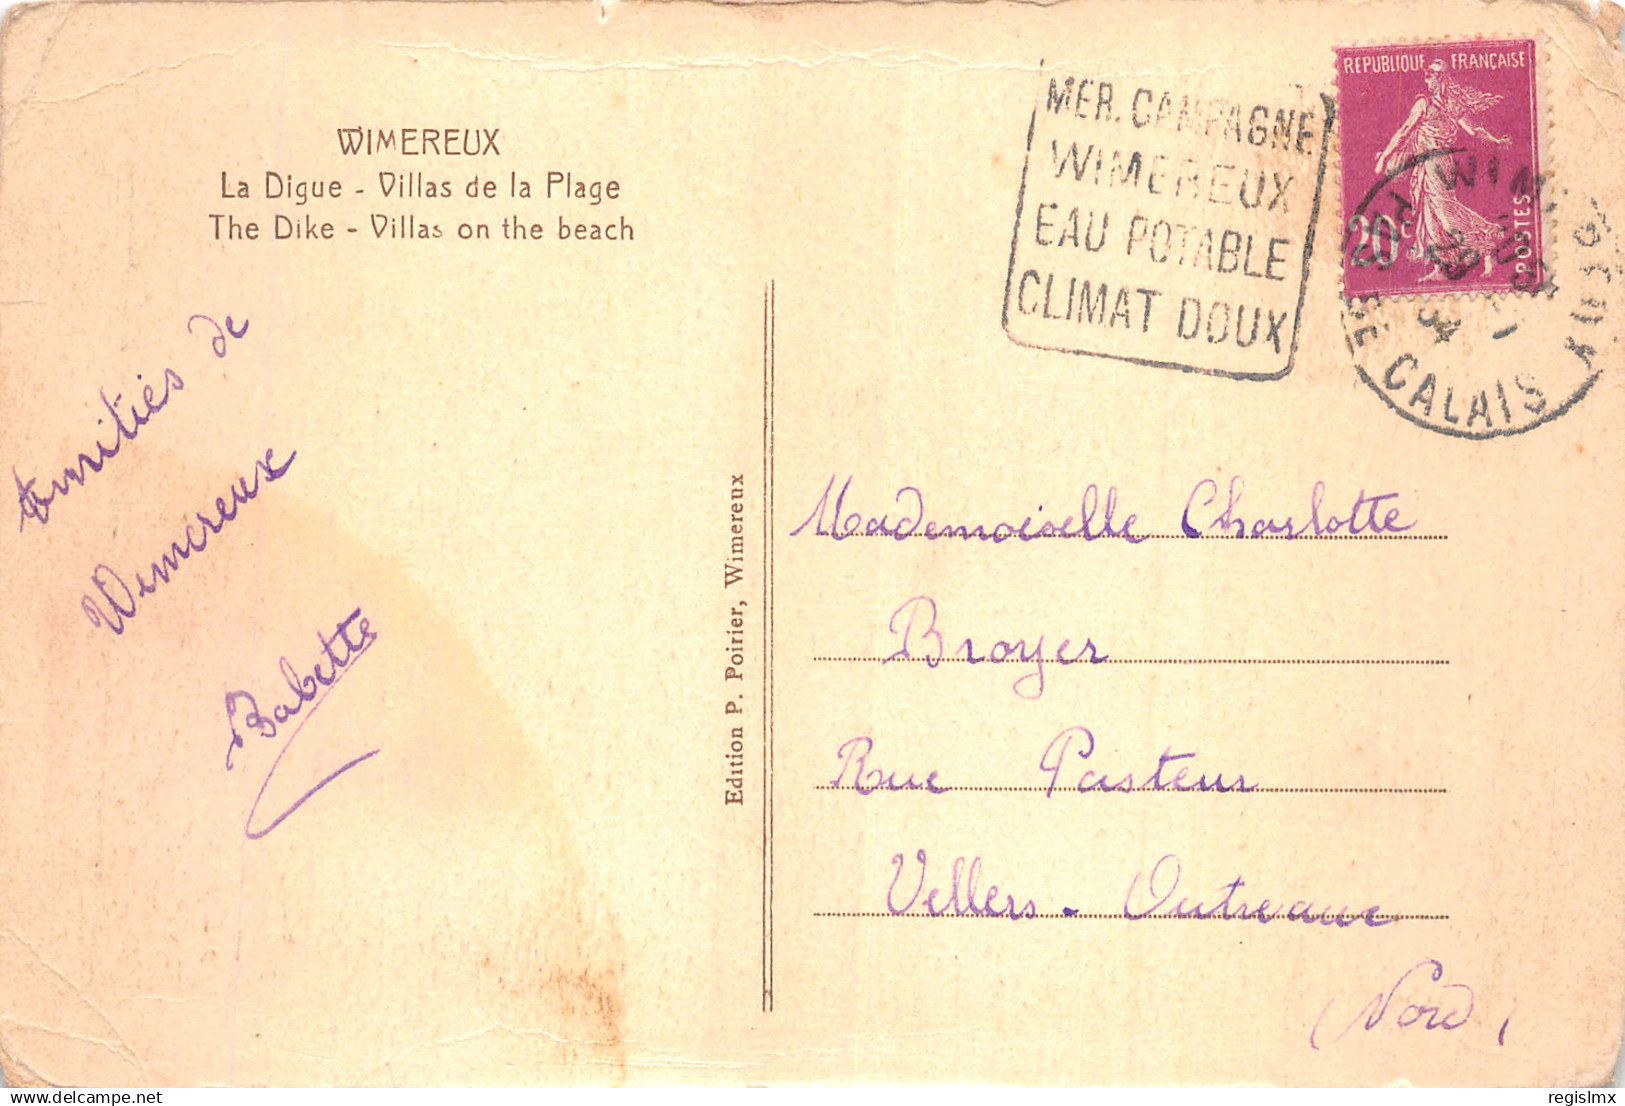 WIMEREUX
La Digue - Villas de la Plage
The Dike - Villas on the beach
MER. CAMPAGNE
WIMEREUX
EAU POTABLE
CLIMAT DOUX
REPUBLIQUE FRANÇAISE
20c
POSTES
CALAIS
34
Amitiés de
Wimereux
Babette
Edition P. Poirier, Wimereux
Mademoiselle Charlotte
Broyer
Rue Pasteur
Villers - Outreaux
(Nord)
delcampe.net
regislmx